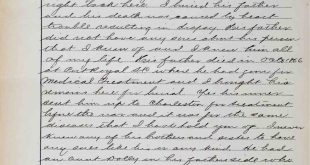 right back here. I buried his father
and his death was caused by heart
trouble resulting in dropsy. His father
did not have any sores about his person
that I knew of and I knew him all
of my life. His father died in Feb 1866
at Port Royal S.C. where he had gone for
Medical Treatment and I brought his
remains here for burial.
sent him up to Charleston for treatment
before the war and it was for the same
disease that I have told you of. I never
knew any of his brothers and sisters to have
any sores like his or any kind. He had
an aunt Dolly on his fathers side who